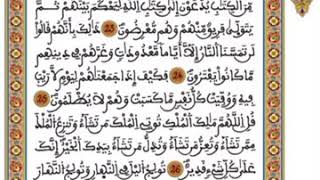 مِّنَ ٱلْكِتَٰبِ يُدْعَوْنَ إِلَىٰ كِتَٰبِ ٱللَّهِ لِيَحْكُمَ بَيْنَهُمْ ثُمَّ
يَتَوَلَّىٰ فَرِيقٌ مِّنْهُمْ وَهُم مُّعْرِضُونَ 23 ذَٰلِكَ بِأَنَّهُمْ قَالُوا۟
لَن تَمَسَّنَا ٱلنَّارُ إِلَّآ أَيَّامًا مَّعْدُودَٰتٍ وَغَرَّهُمْ فِى دِينِهِم
مَّا كَانُوا۟ يَفْتَرُونَ 24 فَكَيْفَ إِذَا جَمَعْنَٰهُمْ لِيَوْمٍ لَّا رَيْبَ
فِيهِ وَوُفِّيَتْ كُلُّ نَفْسٍ مَّا كَسَبَتْ وَهُمْ لَا يُظْلَمُونَ 25
قُلِ ٱللَّهُمَّ مَٰلِكَ ٱلْمُلْكِ تُؤْتِى ٱلْمُلْكَ مَن تَشَآءُ وَتَنزِعُ ٱلْمُلْكَ
مِمَّن تَشَآءُ وَتُعِزُّ مَن تَشَآءُ وَتُذِلُّ مَن تَشَآءُ بِيَدِكَ ٱلْخَيْرُ إِنَّكَ
عَلَىٰ كُلِّ شَىْءٍ قَدِيرٌ 26 تُولِجُ ٱلَّيْلَ فِى ٱلنَّهَارِ وَتُولِجُ ٱلنَّهَارَ